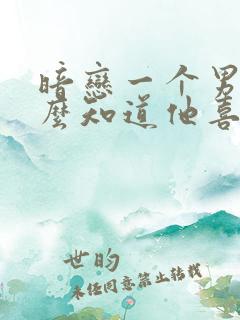 暗戀一个男
麼知道他喜
世的
未经同意禁止转载